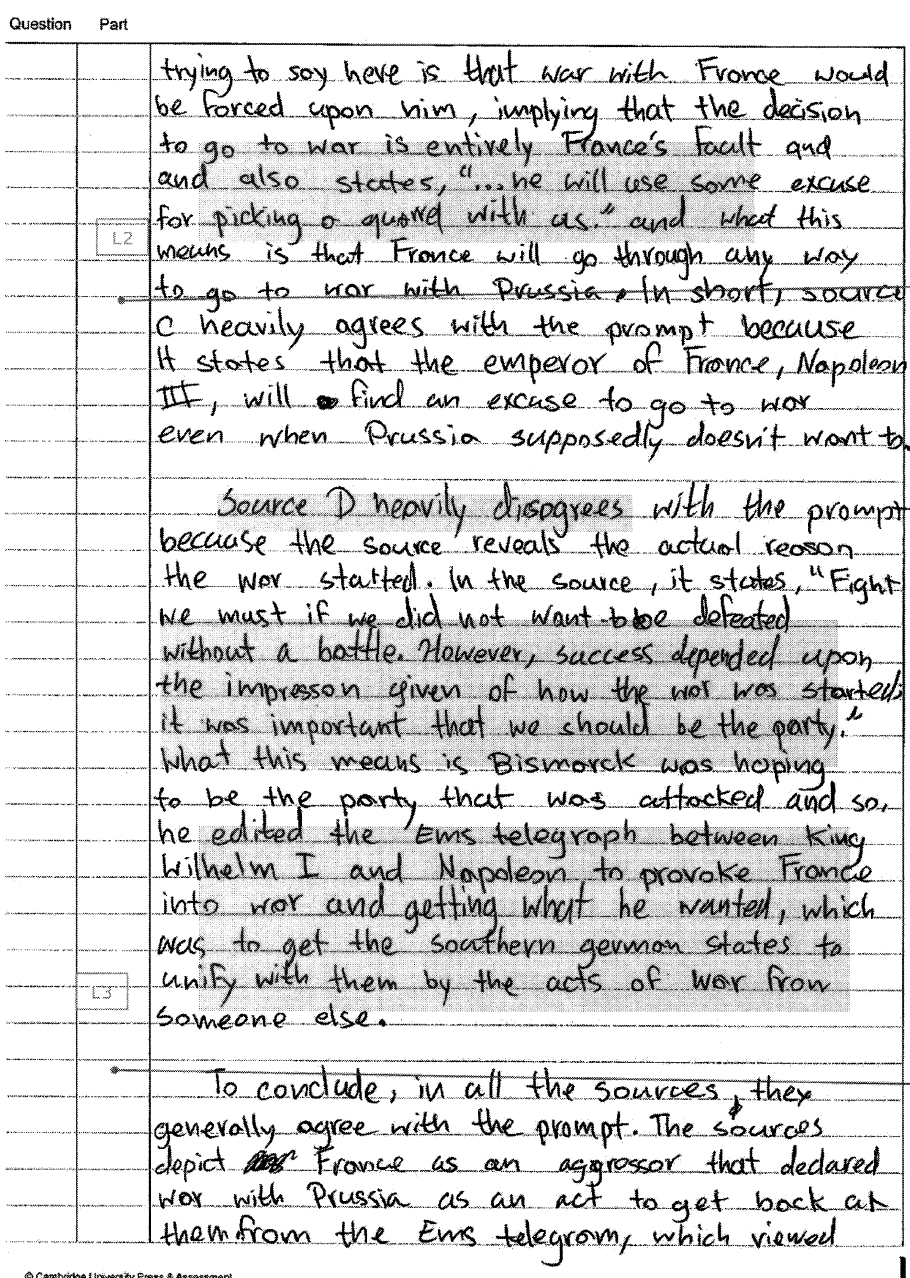 Question Part
trying to say here is that war with France would
be forced upon him, implying that the decision
to go to war is entirely France's fault and
and also states, "...he will use some excuse
for picking a quarrel with us." and what this
L2
means is that France will go through any way
to go to war with Prussia. In short, source
C heavily agrees with the prompt because
it states that the emperor of France, Napoleon
III, will find an excuse to go to war
even when Prussia supposedly doesn't want to.
Source D heavily disagrees with the prompt
because the source reveals the actual reason
the war started. In the source, it states, "Fight
we must if we did not want to be defeated
without a battle. However, success depended upon
the impresson given of how the war was started;
it was important that we should be the party."
What this means is Bismarck was hoping
to be the party that was attacked and so,
he edited the Ems telegraph between King
Wilhelm I and Napoleon to provoke France
into war and getting what he wanted, which
was to get the southern german states to
unify with them by the acts of war from
L3
someone else.
To conclude, in all the sources, they
generally agree with the prompt. The sources
depict France as an aggressor that declared
war with Prussia as an act to get back at
them from the Ems telegram, which viewed
© Cambridge University Press & Assessment